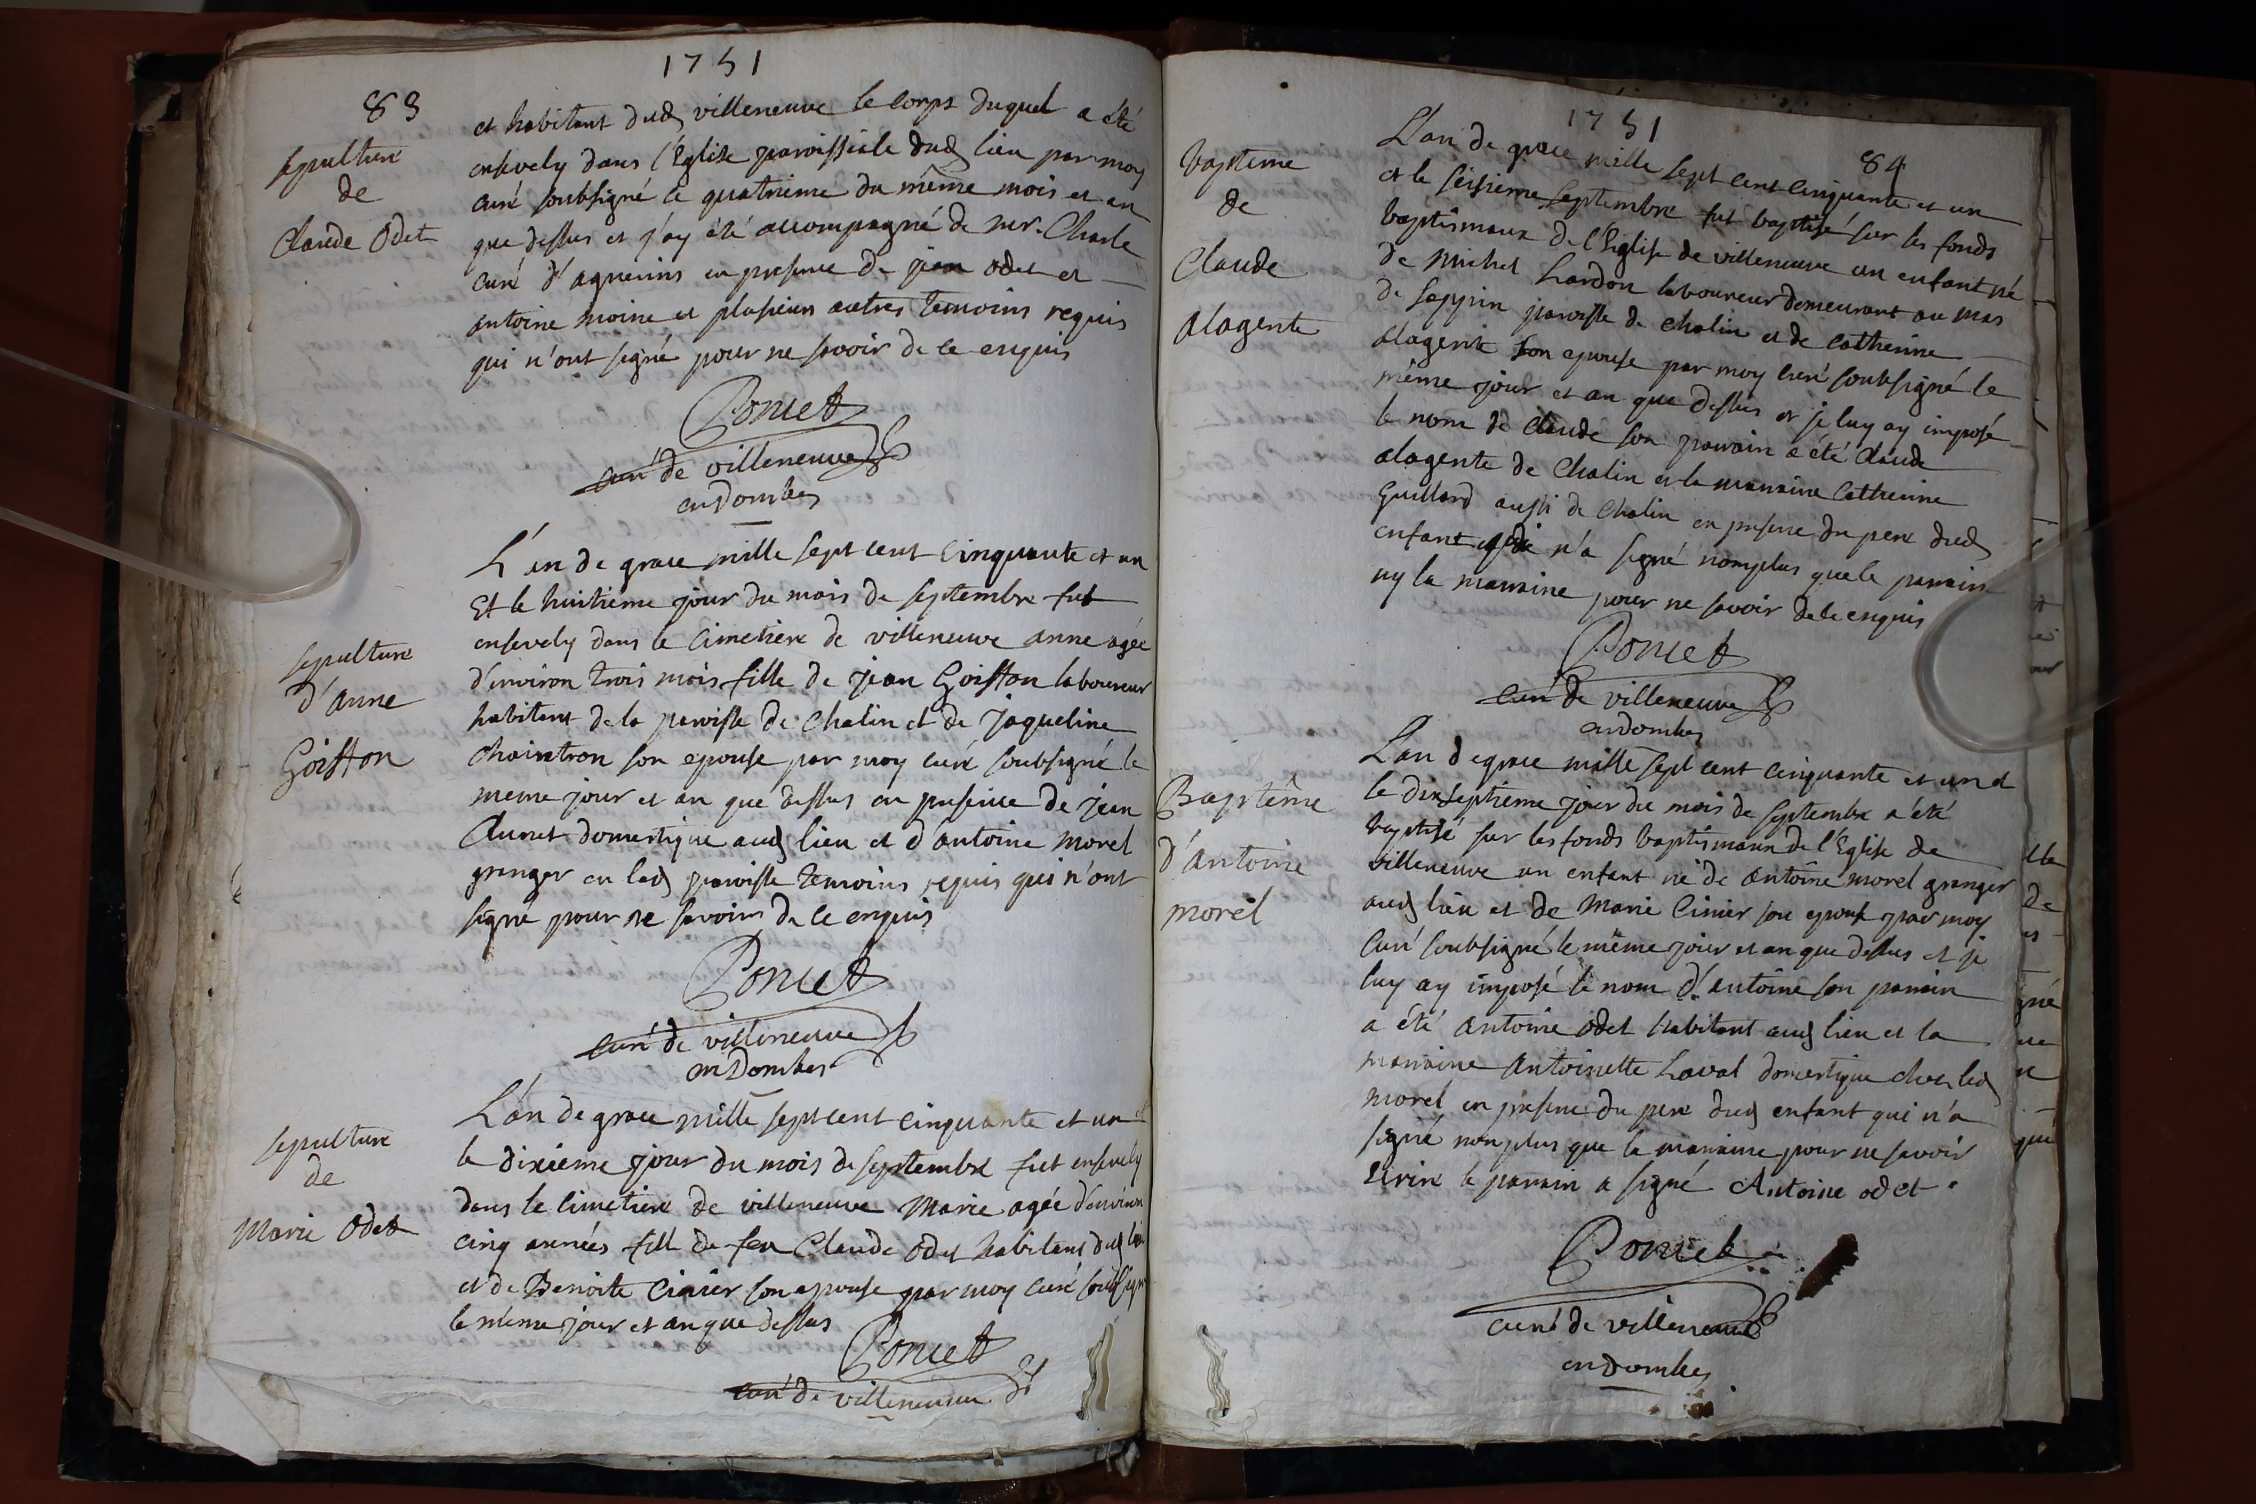 1751
83
sepulture
de
Claude Odet
et habitant dud villeneuve le corps duquel a été
ensevely dans l'Eglise paroissiale dud lieu par moy
curé soubsigné le quatrieme du même mois et an
que dessus et j'ay été accompagné de mr. Charle
curé d'agnerins en presence de jean odet et
antoine moine et plusieurs autres temoins requis
qui n'ont signé pour ne savoir de ce enquis
Poncet
curé de villeneuve
en Dombes
sepulture
d'anne
Goiffon
L'an de grace mille sept cent Cinquante et un
Et le huitieme jour du mois de septembre fut
ensevely dans le Cimetiere de villeneuve anne agée
d'environ trois mois fille de jean Goiffon laboureur
habitant de la paroisse de Chalin et de jaqueline
chaintron son epouse par moy curé soubsigné le
meme jour et an que dessus en presence de jean
Clunet domestique aud lieu et d'antoine morel
granger en lad paroisse temoins requis qui n'ont
signé pour ne savoirs de ce enquis
Poncet
curé de villeneuve
en Dombes
sepulture
de
Marie Odet
L'an de grace mille sept cent cinquante et un et
le dixieme jour du mois de septembre fut ensevely
dans le cimetiere de villeneuve Marie agée d'environ
cinq années fille de feu Claude Odet habitant dud lieu
et de Benoite Cinier son epouse par moy curé soubsigné
le même jour et an que dessus
Poncet
curé de villeneuve
1751
84
bapteme
de
Claude
alagente
L'an de grace mille sept cent cinquante et un
et le seisieme septembre fut baptisé sur les fonds
baptismaux de l'Eglise de villeneuve un enfant né
de Michel Lardon laboureur demeurant au mas
de sappin paroisse de chalin et de catherine
alagente son epouse par moy curé soubsigné le
même jour et an que dessus et je luy ay imposé
le nom de claude son parrain a été Claude
alagente de Chalin et la marraine Catherine
Guillard aussi de Chalin en presence du pere dud
enfant qui n'a signé nomplus que le parrain
ny la marraine pour ne savoir de ce enquis
Poncet
curé de villeneuve
en dombes
Baptême
d'antoine
morel
L'an de grace mille sept cent cinquante et un et
le dixseptieme jour du mois de septembre a été
baptisé sur les fonds baptismaux de l'Eglise de
villeneuve un enfant né de Antoine morel granger
aud lieu et de Marie Cinier son epouse par moy
Curé soubsigné le même jour et an que dessus et je
luy ay imposé le nom d'antoine son parrain
a été Antoine odet habitant aud lieu et la
marraine Antoinette Laval domestique chez led
morel en presence du pere dud enfant qui n'a
signé non plus que la marraine pour ne savoir
Ecrire le parrain a signé Antoine odet.
Poncet
curé de villeneuve
en dombes